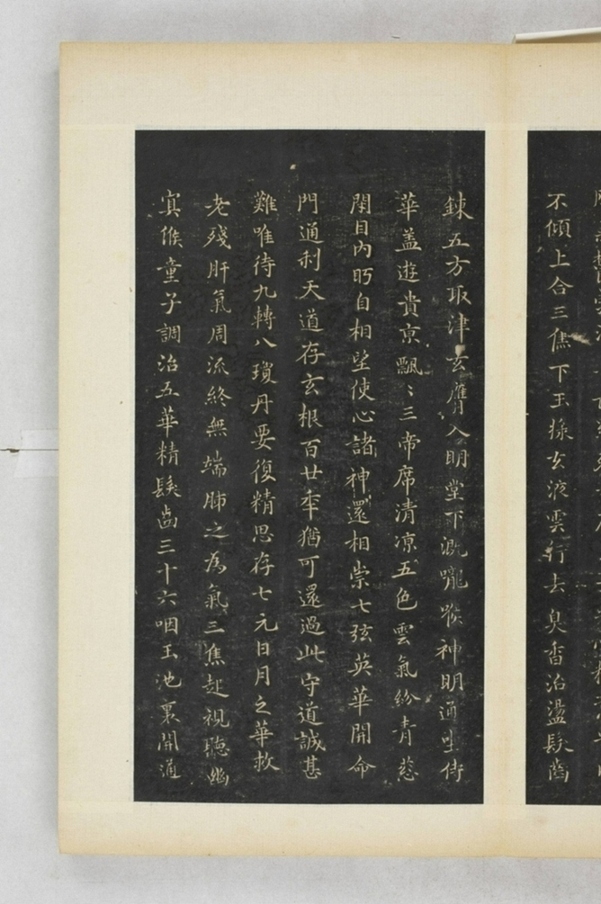 不傾上合三焦下玉漿玄液雲行去臭香治盪髮齒
鍊五方取津玄膺入明堂下溉嚨喉神明通坐侍
華盖遊貴京飄〻三帝席清凉五色雲氣紛青葱
閉目內眄自相望使心諸神還相崇七弦英華開命
門通利天道存玄根百廿年猶可還過此守道誠甚
難唯待九轉八瓊丹要復精思存七元日月之華救
老殘肝氣周流終無端肺之為氣三焦起視聽幽
冥候童子調治五華精髮齒三十六咽玉池裏開通